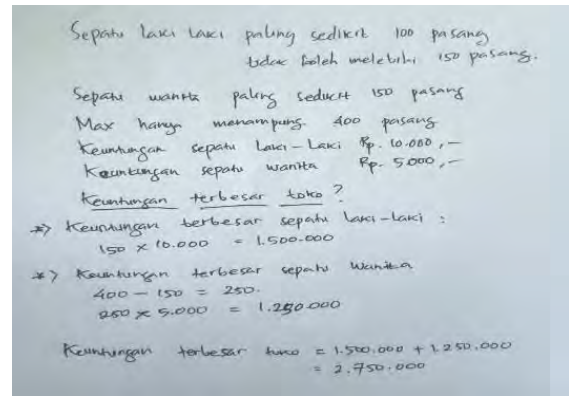 Sepatu laki laki paling sedikit 100 pasang
tidak boleh melebihi 150 pasang.
Sepatu wanita paling sedikit 150 pasang
Max hanya menampung 400 pasang
Keuntungan sepatu Laki-Laki Rp. 10.000,-
Keuntungan sepatu wanita Rp. 5.000,-
Keuntungan terbesar toko ?
*) Keuntungan terbesar sepatu laki-laki :
150 x 10.000 = 1.500.000
*) Keuntungan terbesar sepatu wanita
400 - 150 = 250.
250 x 5.000 = 1.250.000
Keuntungan terbesar toko = 1.500.000 + 1.250.000
= 2.750.000